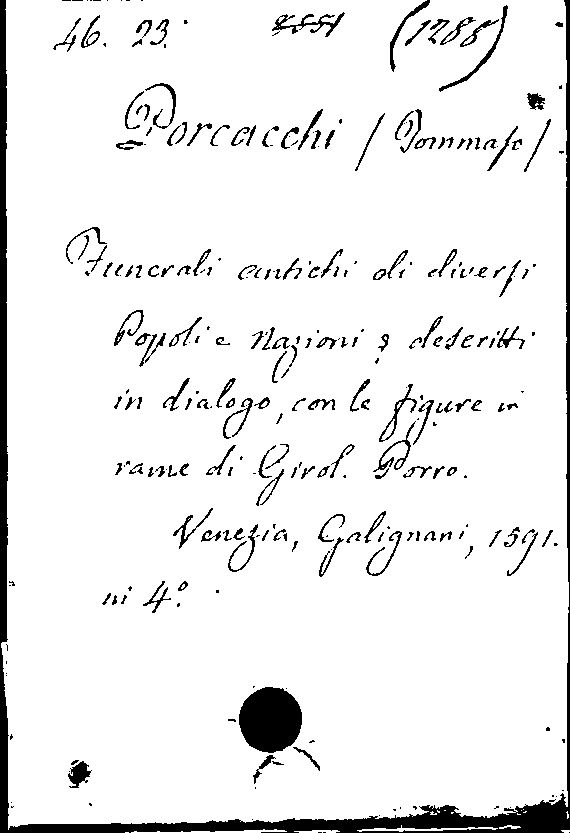 46. 23. (1288)
Porcacchi / Tommaso /
Funerali antichi di diversi
Popoli e Nazioni; descritti
in dialogo, con le figure in
rame di Girol. Porro.
Venezia, Galignani, 1591.
in 4°.